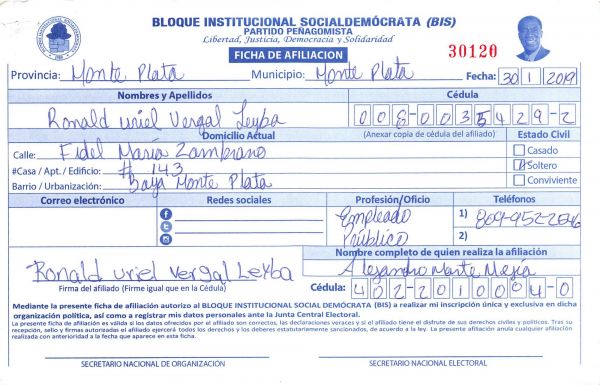 BLOQUE INSTITUCIONAL SOCIALDEMÓCRATA (BIS)
PARTIDO PEÑAGOMISTA
Libertad, Justicia, Democracia y Solidaridad
FICHA DE AFILIACION
30120
Provincia: Monte Plata Municipio: Monte Plata Fecha: 30 1 2019
Nombres y Apellidos Cédula
Ronald Uriel Vergal Leyba 008-0035429-2
Domicilio Actual (Anexar copia de cédula del afiliado) Estado Civil
Calle: Fidel María Zambrano Casado
#Casa / Apt. / Edificio: # 143 Soltero
Barrio / Urbanización: Monte Plata Conviviente
Correo electrónico Redes sociales Profesión/Oficio Teléfonos
Empleado 1) 809-952-2646
Público 2)
Nombre completo de quien realiza la afiliación
Ronald Uriel Vergal Leyba Alejandro Marte Mejía
Firma del afiliado (Firme igual que en la Cédula) Cédula: 402-2010004-0
Mediante la presente ficha de afiliación autorizo al BLOQUE INSTITUCIONAL SOCIAL DEMÓCRATA (BIS) a realizar mi inscripción única y exclusiva en dicha
organización política, así como a registrar mis datos personales ante la Junta Central Electoral.
La presente ficha de afiliación es válida si los datos ofrecidos por el afiliado son correctos, las declaraciones veraces y si el afiliado tiene el disfrute de sus derechos civiles y políticos. Tras su
recepción, sello y firmas autorizadas el afiliado ejercerá todos los derechos y los deberes estatutariamente sancionados, de acuerdo a la ley. La presente afiliación anula cualquier afiliación
realizada con anterioridad a la fecha que aparece en esta ficha.
SECRETARIO NACIONAL DE ORGANIZACIÓN SECRETARIO NACIONAL ELECTORAL